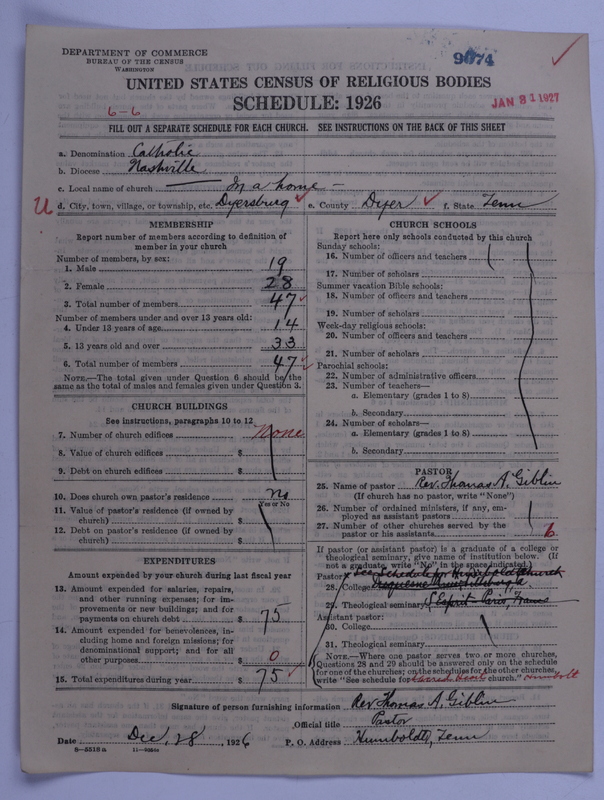 DEPARTMENT OF COMMERCE
BUREAU OF THE CENSUS
WASHINGTON
9074
UNITED STATES CENSUS OF RELIGIOUS BODIES
SCHEDULE: 1926
JAN 31 1927
6-6
FILL OUT A SEPARATE SCHEDULE FOR EACH CHURCH. SEE INSTRUCTIONS ON THE BACK OF THIS SHEET
a. Denomination Catholic
b. Diocese Nashville
c. Local name of church In a home
U d. City, town, village, or township, etc. Dyersburg e. County Dyer f. State Tenn
MEMBERSHIP
Report number of members according to definition of
member in your church
Number of members, by sex:
1. Male 19
2. Female 28
3. Total number of members 47
Number of members under and over 13 years old:
4. Under 13 years of age 14
5. 13 years old and over 33
6. Total number of members 47
NOTE.—The total given under Question 6 should be the
same as the total of males and females given under Question 3.
CHURCH BUILDINGS
See instructions, paragraphs 10 to 12
7. Number of church edifices None
8. Value of church edifices $
9. Debt on church edifices $
10. Does church own pastor's residence No
Yes or No
11. Value of pastor's residence (if owned by
church) $
12. Debt on pastor's residence (if owned by
church) $
EXPENDITURES
Amount expended by your church during last fiscal year
13. Amount expended for salaries, repairs,
and other running expenses; for im-
provements or new buildings; and for
payments on church debt $ 75
14. Amount expended for benevolences, in-
cluding home and foreign missions; for
denominational support; and for all
other purposes $ 0
15. Total expenditures during year $ 75
CHURCH SCHOOLS
Report here only schools conducted by this church
Sunday schools:
16. Number of officers and teachers
17. Number of scholars
Summer vacation Bible schools:
18. Number of officers and teachers
19. Number of scholars
Week-day religious schools:
20. Number of officers and teachers
21. Number of scholars
Parochial schools:
22. Number of administrative officers
23. Number of teachers—
a. Elementary (grades 1 to 8)
b. Secondary
24. Number of scholars—
a. Elementary (grades 1 to 8)
b. Secondary
PASTOR
25. Name of pastor Rev. Thomas A. Giblin
(If church has no pastor, write "None")
26. Number of ordained ministers, if any, em-
ployed as assistant pastors
27. Number of other churches served by the
pastor or his assistants 6
If pastor (or assistant pastor) is a graduate of a college or
theological seminary, give name of institution below. (If
not a graduate, write "No" in the space indicated.)
Pastor: See Schedule for Humboldt Church
28. College Duquesne
29. Theological seminary S. Esprit - Paris, France
Assistant pastor:
30. College
31. Theological seminary
NOTE.—Where one pastor serves two or more churches,
Questions 28 and 29 should be answered only on the schedule
for one of the churches; on the schedules for the other churches,
write "See schedule for Sacred Heart church." Humbolt
Signature of person furnishing information Rev. Thomas A. Giblin
Official title Pastor
Date Dec, 28, 1926 P. O. Address Humboldt, Tenn
8—5518a